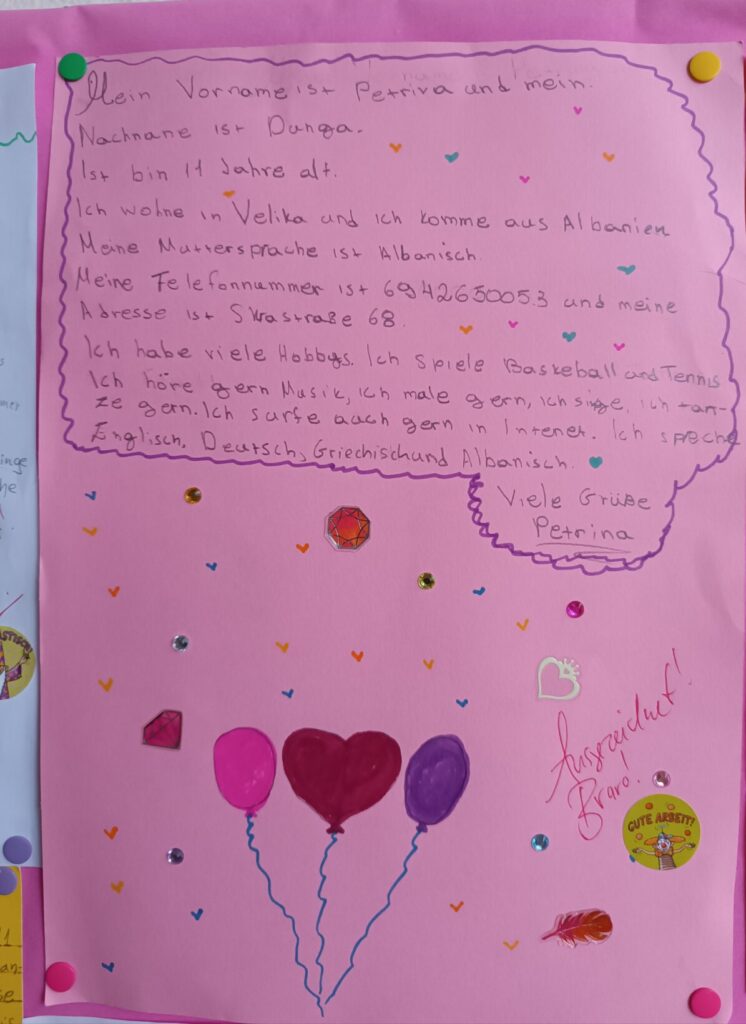 Mein Vorname ist Petriva und mein.
Nachnane ist Dunga.
Ist bin 11 Jahre alt.
Ich wohne in Velika und ich komme aus Albanien
Meine Muttersprache ist Albanisch.
Meine Telefonnummer ist 6942650053 und meine
Adresse ist Skrastraße 68.
Ich habe viele Hobbys. Ich spiele Baskeball und Tennis
Ich höre gern Musik, ich male gern, ich singe, ich tan-
ze gern. Ich surfe auch gern in Internet. Ich spreche
Englisch, Deutsch, Griechisch und Albanisch.
Viele Grüße
Petrina
Ausgezeichnet!
Bravo!
GUTE ARBEIT!